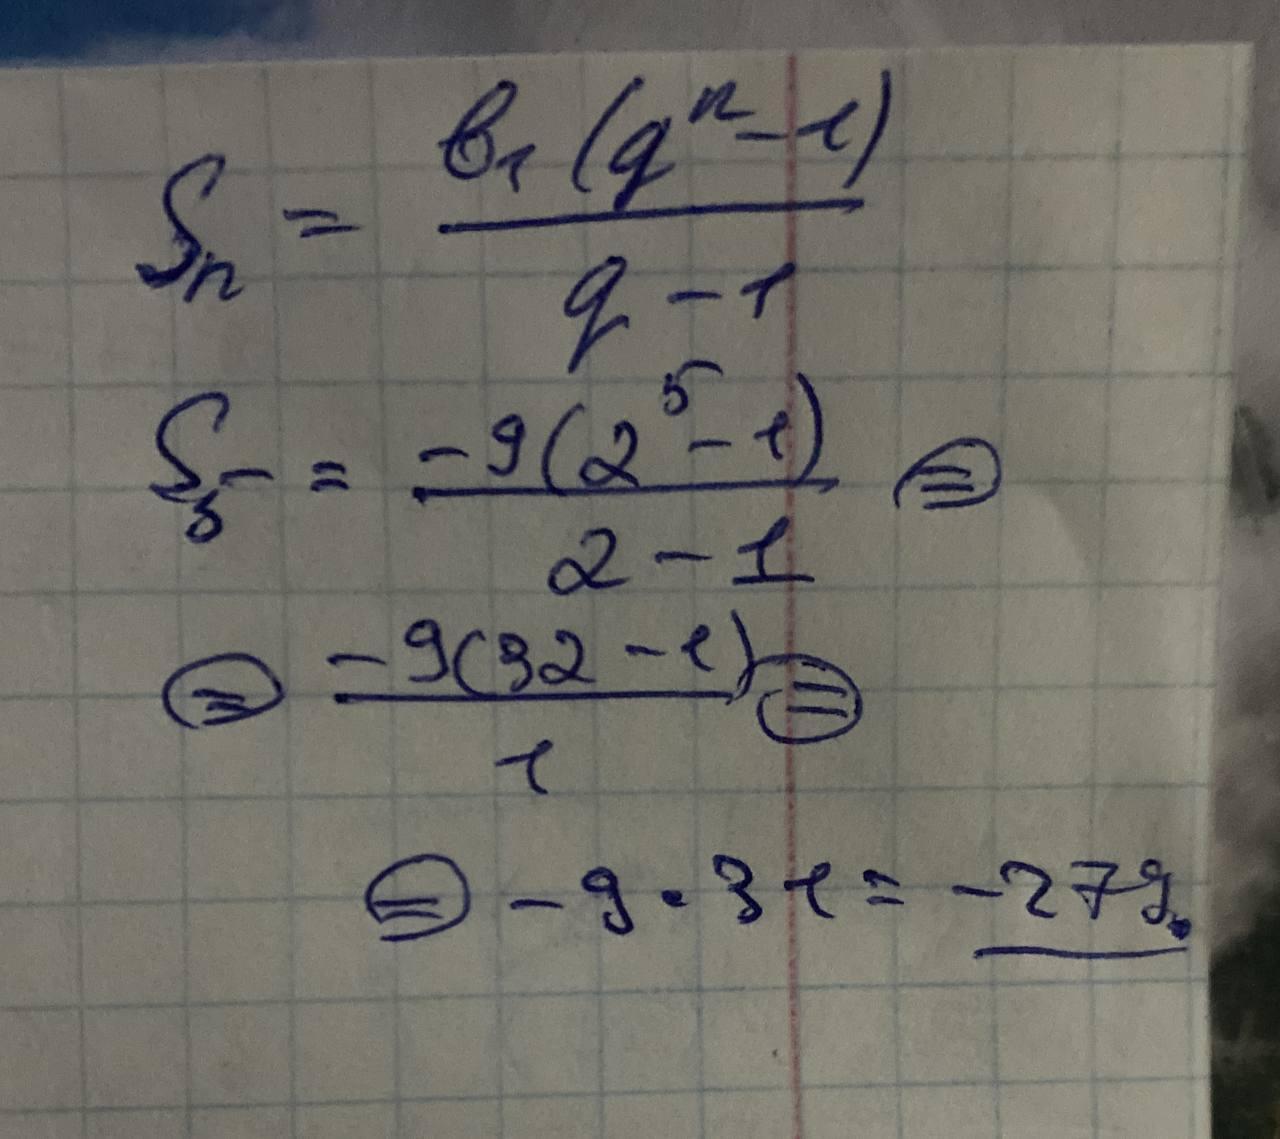 Sₙ = b₁(qⁿ - 1) / q - 1
S₅ = -9(2⁵ - 1) / 2 - 1 =
= -9(32 - 1) / 1 =
= -9 · 31 = -279.